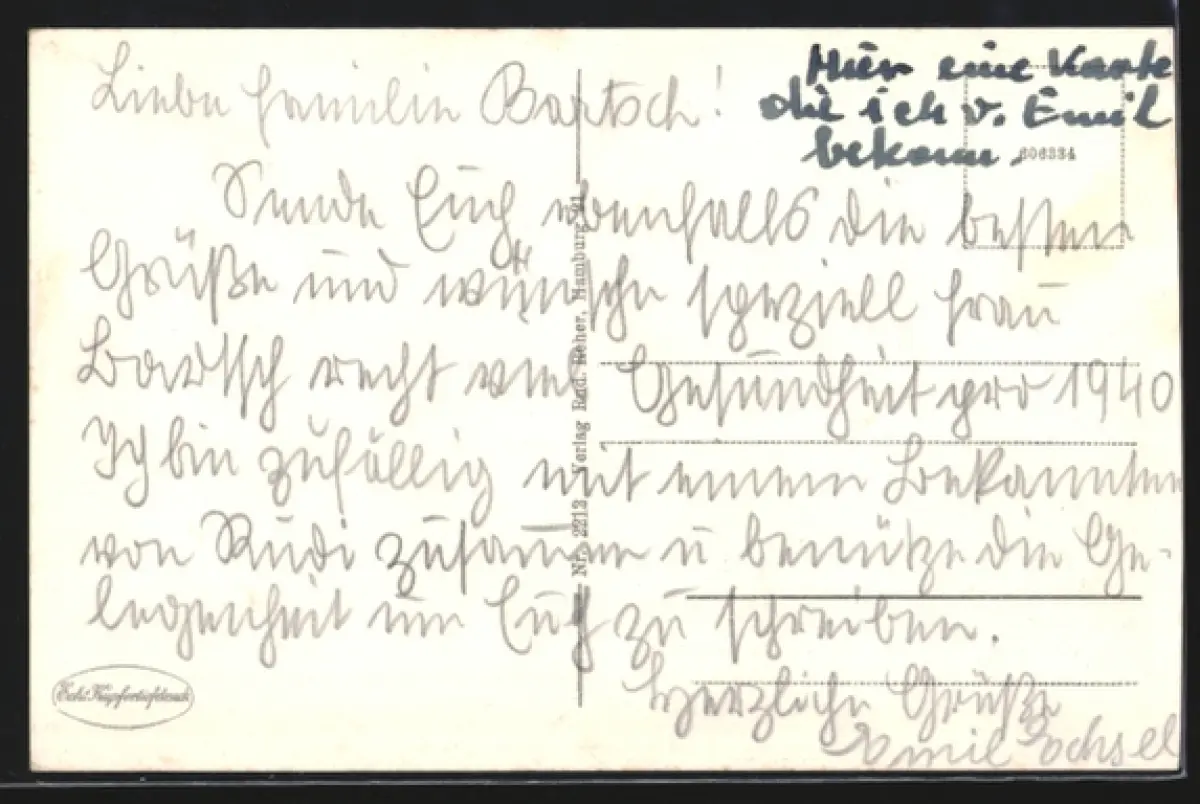 Hier eine Karte
die ich v. Emil
bekam.
606334
Liebe Familie Bartsch!
Sende Euch ebenfalls die besten
Grüße und wünsche speziell Frau
Bartsch recht viel Gesundheit pro 1940
Ich bin zufällig mit einem Bekannten
von Rudi zusammen u benütze die Ge-
legenheit um Euch zu schreiben.
Herzliche Grüße
Emil
Nr. 2212 Verlag Rud. Reher, Hamburg 21
Echt Kupfertiefdruck